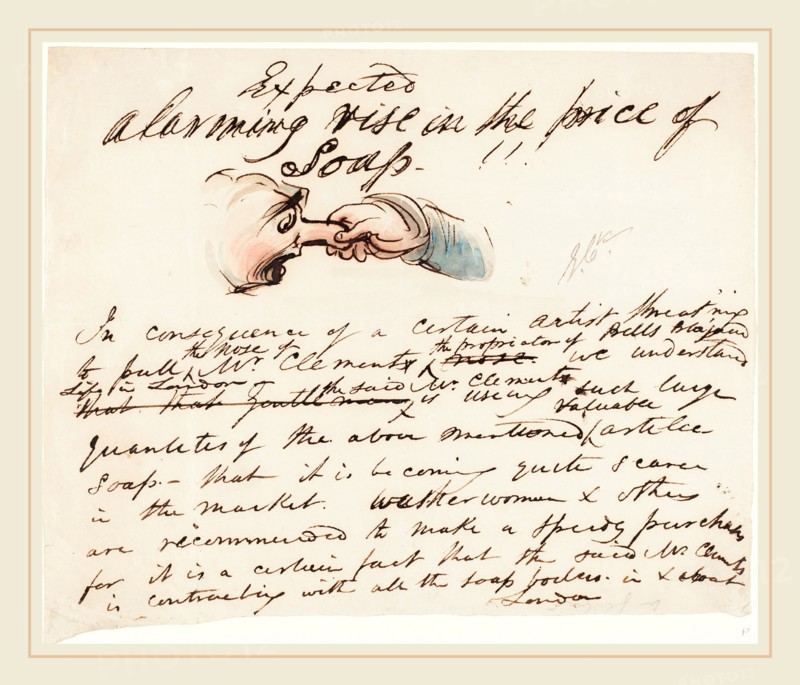 Expected
alarming rise in the price of
Soap. !!!
In consequence of a certain artist threat'nig
to pull the nose of Mr. Clements the propriator of Bells
Life in London we understand
that that gentleman the said Mr. Clements is useing such large
quantetes of the above mentioned valuable article
soap. - that it is becoming quite scarce
in the market. washerwomen & others
are recommended to make a speedy purchase
for it is a certain fact that the said Mr. Clements
is contracting with all the soap boilers. in & about
London